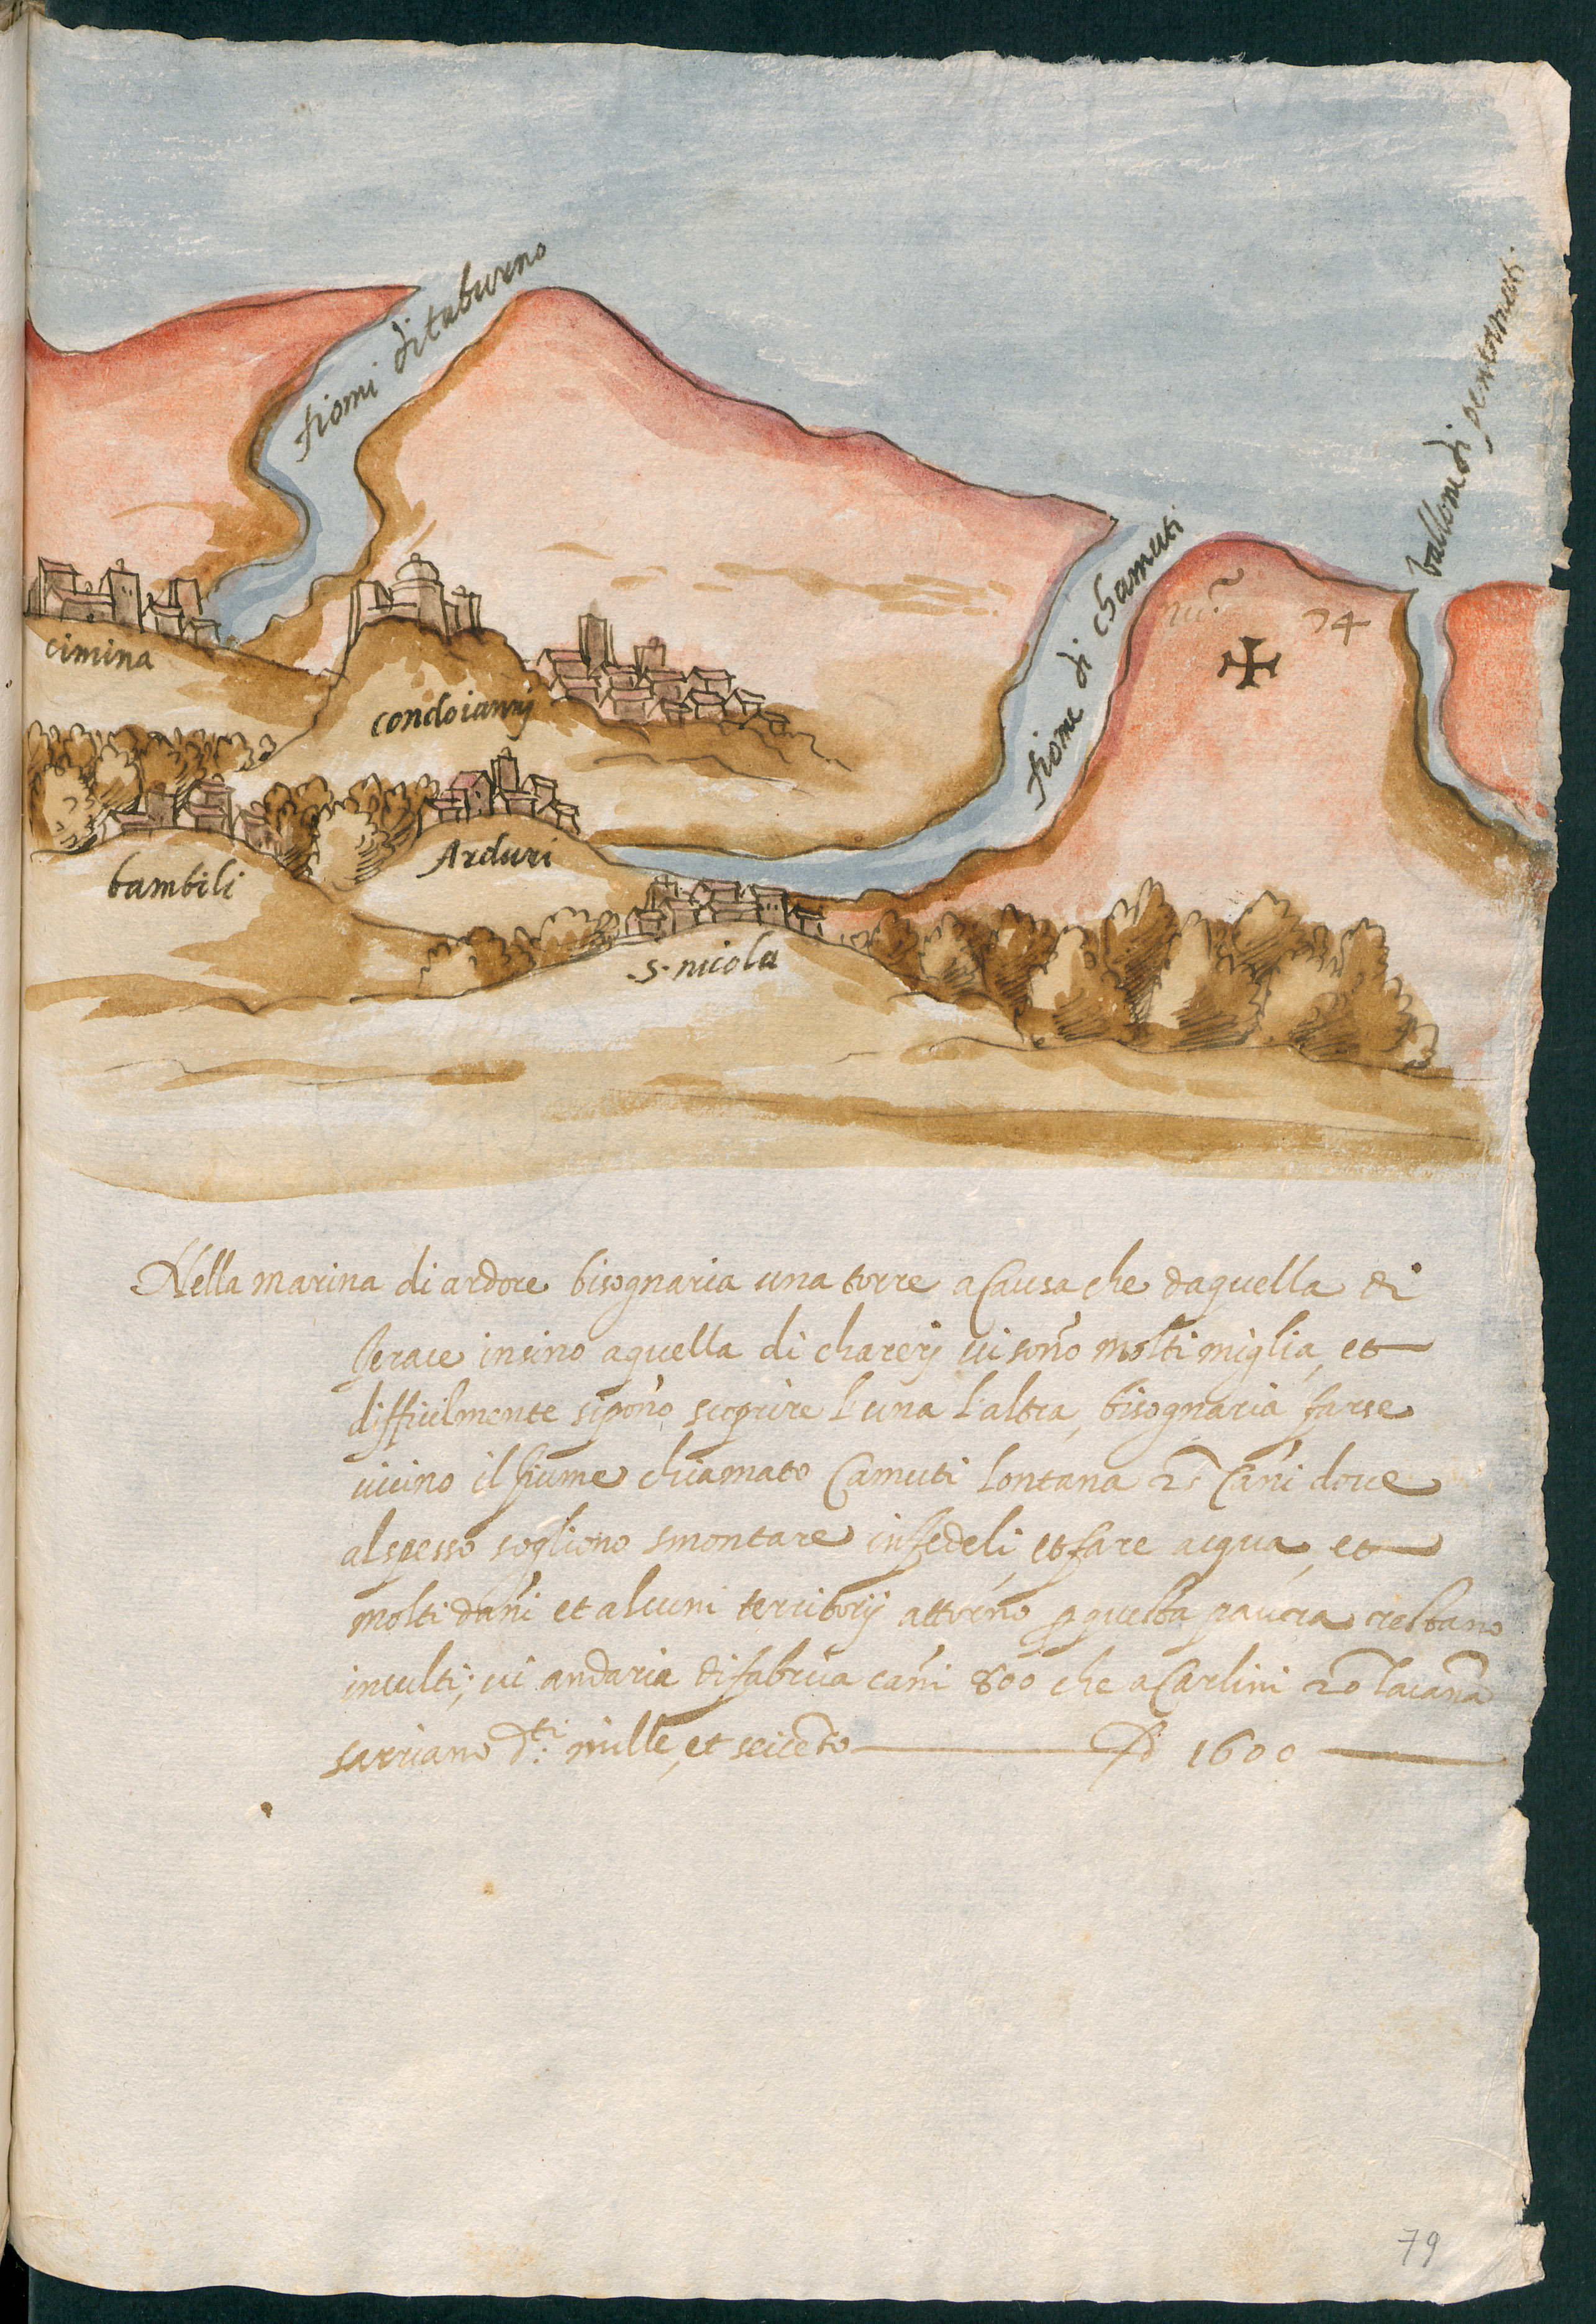 fiomi di taburno
ballone di pentameti
fiome di chamuti
nu.º 74
cimina
condoianni
Arduri
bambili
s. nicola
Nella marina di ardore bisognaria una torre a Causa che da quella di
Jerace insino a quella di chareri vi sono molti miglia, et
difficilmente si pono scoprire l'una l'altra, bisognaria farse
vicino il fiume chiamato Camuti lontana Cani dove
al spesso sogliono smontare infedeli, et fare acqua, et
molti dani et alcuni territorij attorno p questa paura restano
inculti; vi andaria di fabrica cani 800 che a Carlini 20 la cana
sarriano d.ti mille, et seicento D 1600
79